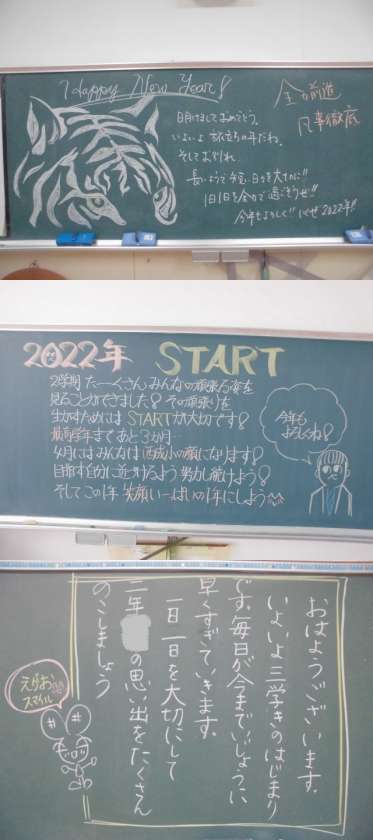 Happy New Year!
明けましておめでとう。
いよいよ旅立ちの年だね。
そしてお別れ
長いようで短い日々を大切に!!
1日1日を全力で過ごそうぜ!!
今年もよろしく!! いくぜ2022年!!
全力前進
凡事徹底
2022年 START
2学期 たーーくさん みんなの頑張る姿を
見ることができました! その頑張りを
生かすためには STARTが大切です!
最高学年まであと3か月…
4月にはみんなは西成小の顔になります!
目指す的に近づけるよう努力し続けよう!
そしてこの1年 笑顔いーっぱいの1年にしよう
今年も
よろしくね!
おはようございます。
いよいよ三学きのはじまり
です。毎日が今までいじょうに
早くすぎていきます。
一日一日を大切にして
二年 の思い出をたくさん
のこしましょう
えがお
スマイル